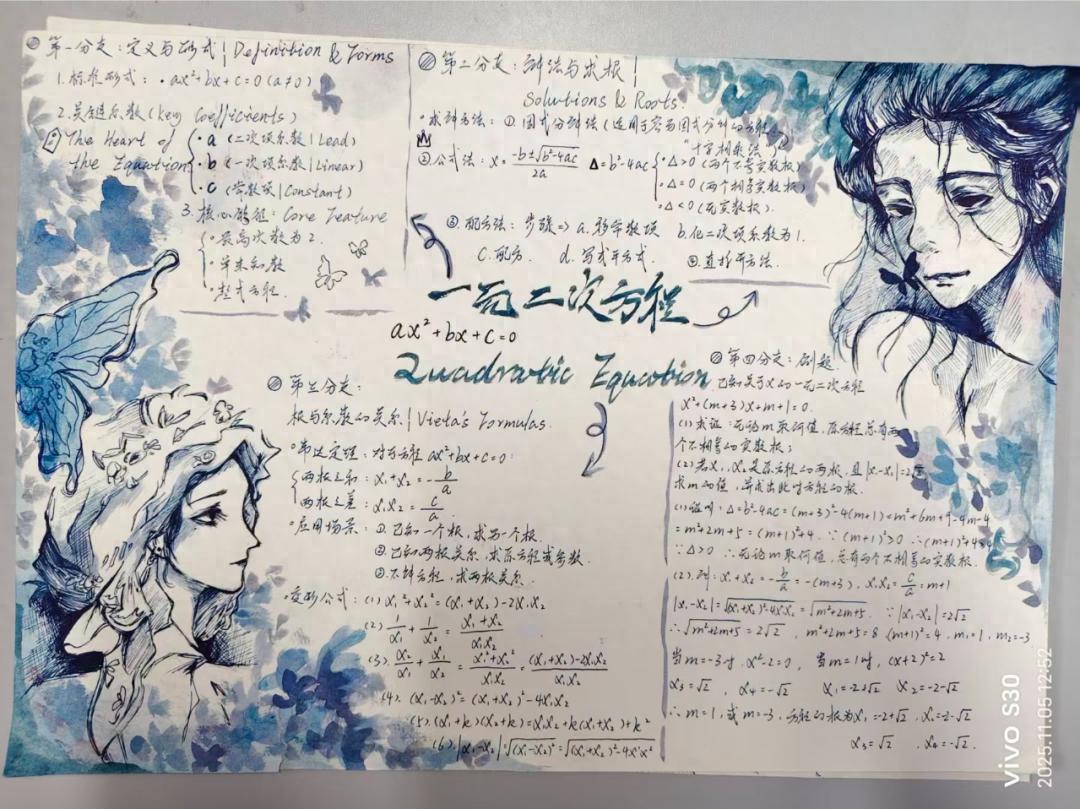 第一分支：定义与形式 | Definition & Forms
1.标准形式：·ax²+bx+c=0(a≠0)
2.关键系数(key Coefficients)
The Heart of
the Equation
·a (二次项系数|Lead)
·b (一次项系数|Linear)
·c (常数项|Constant)
3.核心特征：Core Feature
·最高次数为2.
·单未知数
·整式方程.
第二分支：解法与求根 |
Solutions & Roots.
·求解方法：①因式分解法(适用于容易因式分解的方程
"十字相乘法"
②公式法：x=(-b±√(b²-4ac))/2a Δ=b²-4ac
·Δ>0 (两个不等实数根)
·Δ=0 (两个相等实数根)
·Δ<0 (无实数根).
③.配方法：步骤=> a.移常数项 b.化二次项系数为1.
C.配方. d.写成平方式. ④.直接开方法.
一元二次方程
ax²+bx+c=0
Quadratic Equation
第三分支：
根与系数的关系 | Vieta's Formulas.
·韦达定理：对于方程 ax²+bx+c=0:
两根之和：x₁+x₂=-b/a
两根之差：x₁x₂=c/a
·应用场景：①.已知一个根,求另一个根.
②.已知两根关系,求原方程或参数.
③.不解方程,求两根关系.
·变形公式：(1) x₁²+x₂²=(x₁+x₂)-2x₁x₂
(2) 1/x₁+1/x₂=(x₁+x₂)/x₁x₂
(3). x₂/x₁+x₁/x₂=(x₁²+x₂²)/x₁x₂=((x₁+x₂)-2x₁x₂)/x₁x₂
(4). (x₁-x₂)²=(x₁+x₂)²-4x₁x₂
(5). (x₁+k)(x₂+k)=x₁x₂+k(x₁+x₂)+k²
(6). |x₁-x₂|=√(x₁-x₂)²=√((x₁+x₂)²-4x₁x₂)
第四分支：刷题.
已知关于x的一元二次方程
x²+(m+3)x+m+1=0.
(1)求证：无论m取何值,原方程总有两
个不相等的实数根；
(2)若x₁,x₂是原方程的两根,且|x₁-x₂|=2√2,
求m的值,并求出此时方程的根.
(1)证明：Δ=b²-4ac=(m+3)²-4(m+1)=m²+6m+9-4m-4
=m²+2m+5=(m+1)²+4. ∵(m+1)²≥0 ∴(m+1)²+4≥4
∵Δ>0 ∴无论m取何值,总有两个不相等的实数根.
x₁+x₂=-b/a=-(m+3), x₁x₂=c/a=m+1
|x₁-x₂|=√((x₁+x₂)²-4x₁x₂)=√(m²+2m+5) ∵|x₁-x₂|=2√2
∴√(m²+2m+5)=2√2, m²+2m+5=8 (m+1)²=4, m₁=1, m₂=-3
当m=-3时,x²-2=0, 当m=1时,(x+2)²=2
x₃=√2, x₄=-√2 x₁=-2+√2 x₂=-2-√2
∴m=1,或m=-3,方程的根为x₁=-2+√2,x₂=-2-√2
x₃=√2 ,x₄=-√2.
vivo S30
2025.11.05 12:52